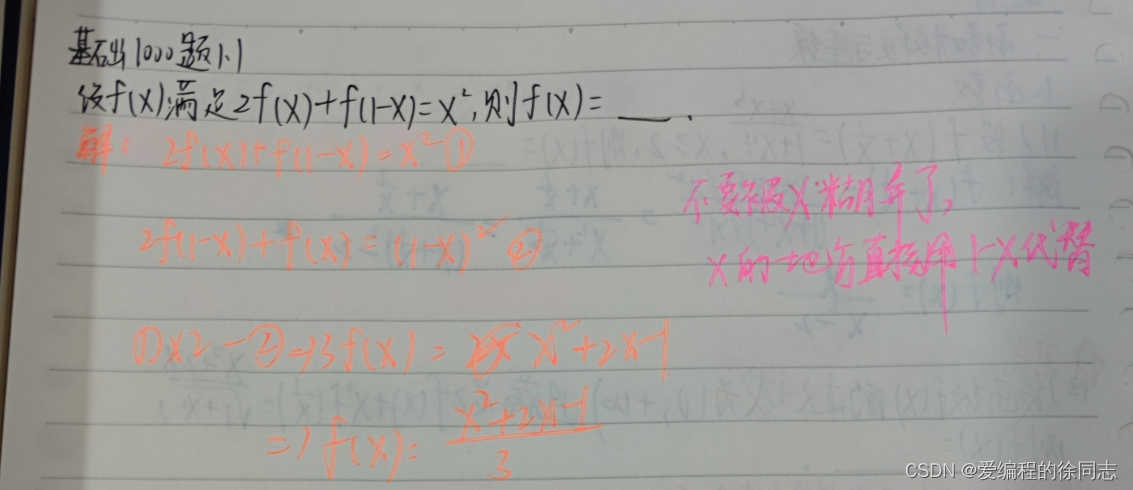 基础1000题1.1
设f(x)满足2f(x)+f(1-x)=x²,则f(x)= ___ .
解: 2f(x)+f(1-x)=x² ①
2f(1-x)+f(x)=(1-x)² ②
不要被x糊弄了,
x的地方直接用1-x代替
①×2-②⇒3f(x)= x²+2x-1
⇒f(x)= x²+2x-1 / 3
CSDN @爱编程的徐同志